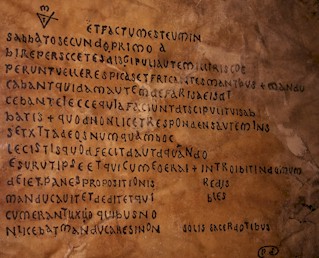 ETFACTUMESTEUMIN
SABBATOSECUNDOPRIMO A
BIREPERSCCETESDISCIPULIAUTEMILLIRISCOE
PERUNTVELLERESPICASETFRICANTESMANIBUS + MANDU
CABANTQUIDAMAUTEMDEFARISAEISDI
CEBANTEIECCEQUIAFACIUNTDISCIPULITUISAB
BATIS + QUODNONLICETRESPONDENSAUTEMINS
SETXTTADEOSNUMQUAMHOC
LECISTISQUODFECITDAUTDQUANDO
ESURUTIPSEETQUICUMEOERAI + INTROIBITINDOMUM
DEIETPANESPROPOSITIONIS REDIS
MANDUCAUITETDEDITETQUI BLES
CUMERANTUXUO QUIBUSNO
NLICEBATMANDUCARESINON SOLIS SACERDOTIBUS